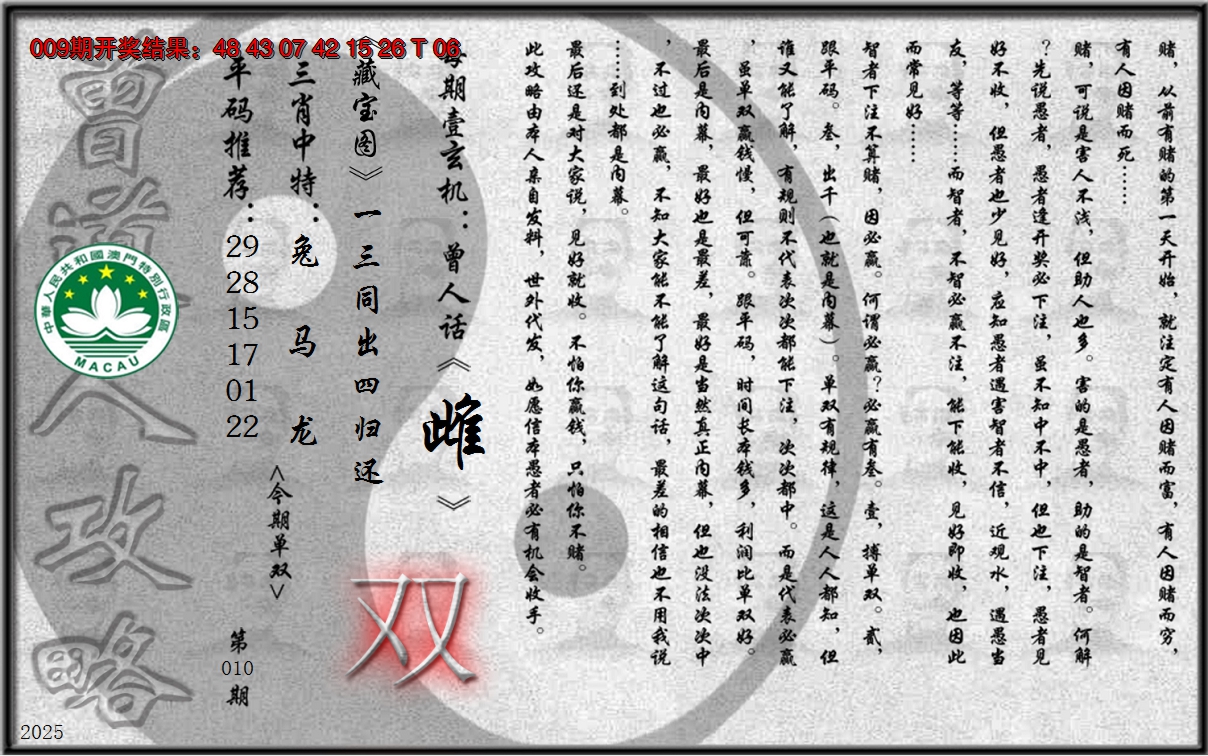 009期开奖结果：48 43 07 42 15 26 T 06
赌，从前有赌的第一天开始，就注定有人因赌而富，有人因赌而穷，
有人因赌而死……
赌，可说是害人不浅，但助人也多。害的是愚者，助的是智者。何解
？先说愚者，愚者逢开奖必下注，虽不知中不中，但也下注，愚者见
好不收，但愚者也少见好，应知愚者遇害智者不信，近观水，遇愚当
友，等等……而智者，不智必赢不注，能下能收，见好即收，也因此
而常见好……
智者下注不算赌，因必赢。何谓必赢？必赢有叁。壹，搏单双。贰，
跟平码。叁，出千（也就是内幕）。单双有规律，这是人人都知，但
谁又能了解，有规则不代表次次都能下注，次次都中。而是代表必赢
，虽单双赢钱慢，但可靠。跟平码，时间长本钱多，利润比单双好。
最后是内幕，最好也是最差，最好是当然真正内幕，但也没法次次中
，不过也必赢，不知大家能不能了解这句话，最差的相信也不用我说
……到处都是内幕。
最后还是对大家说，见好就收。不怕你赢钱，只怕你不赌。
此攻略由本人亲自发料，世外代发，如愿信本愚者必有机会收手。
每期壹玄机：曾人话《雌》
《藏宝图》一三同出四归还
双
三肖中特：兔 马 龙
<今期单双>
平码推荐：
29
28
15
17
01
22
第
010
期
曾道人攻略
中華人民共和國澳門特別行政區
MACAU
2025